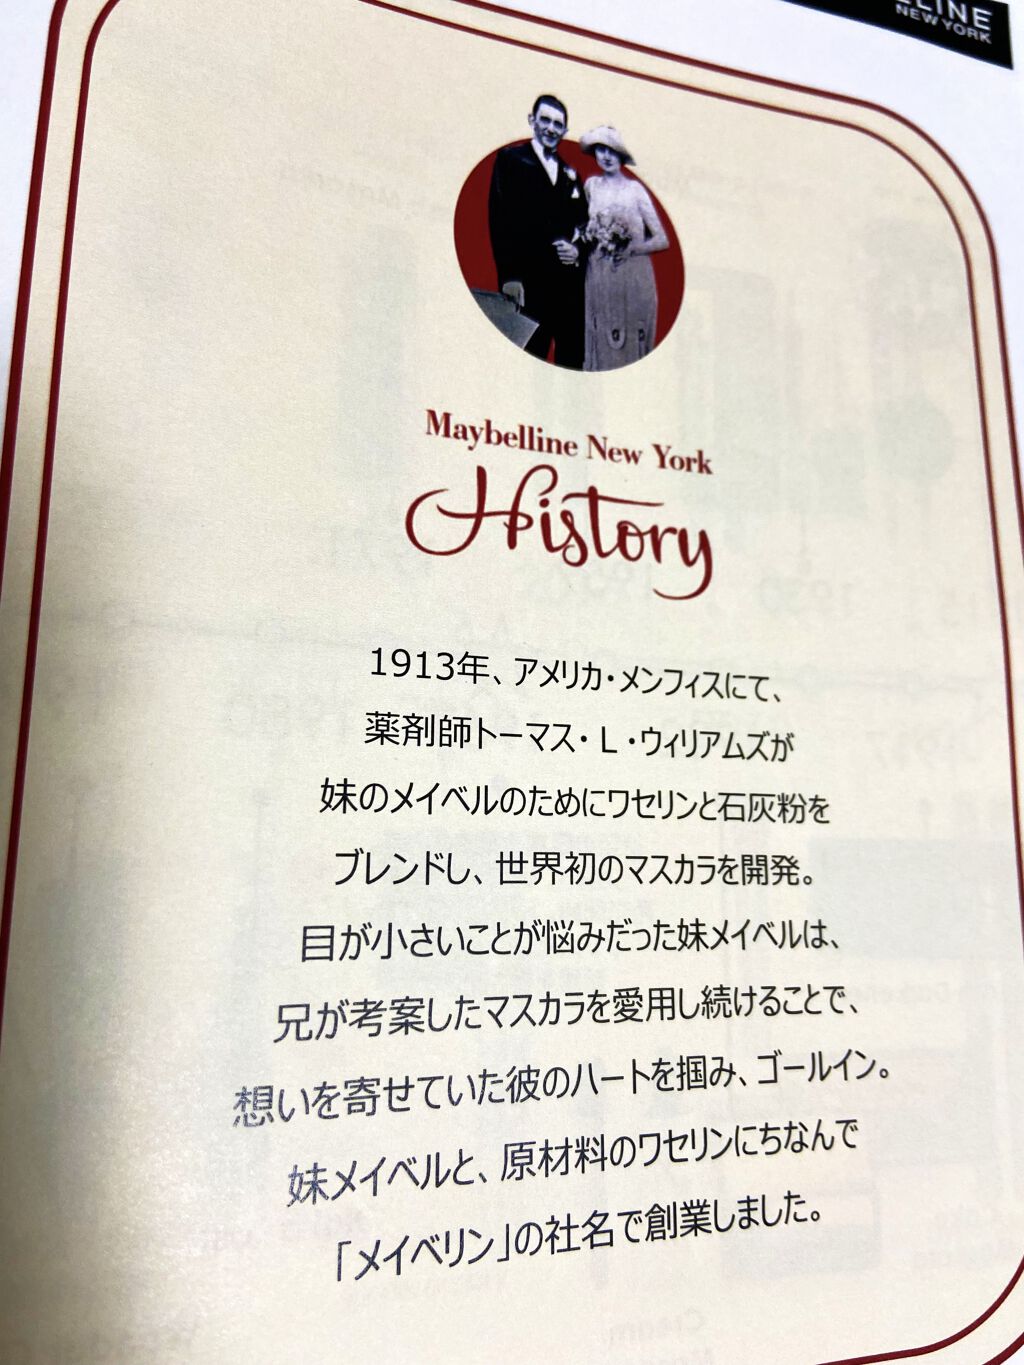 NEW YORK
Maybelline New York
History
1913年、アメリカ・メンフィスにて、
薬剤師トーマス・L・ウィリアムズが
妹のメイベルのためにワセリンと石灰粉を
ブレンドし、世界初のマスカラを開発。
目が小さいことが悩みだった妹メイベルは、
兄が考案したマスカラを愛用し続けることで、
想いを寄せていた彼のハートを掴み、ゴールイン。
妹メイベルと、原材料のワセリンにちなんで
「メイベリン」の社名で創業しました。